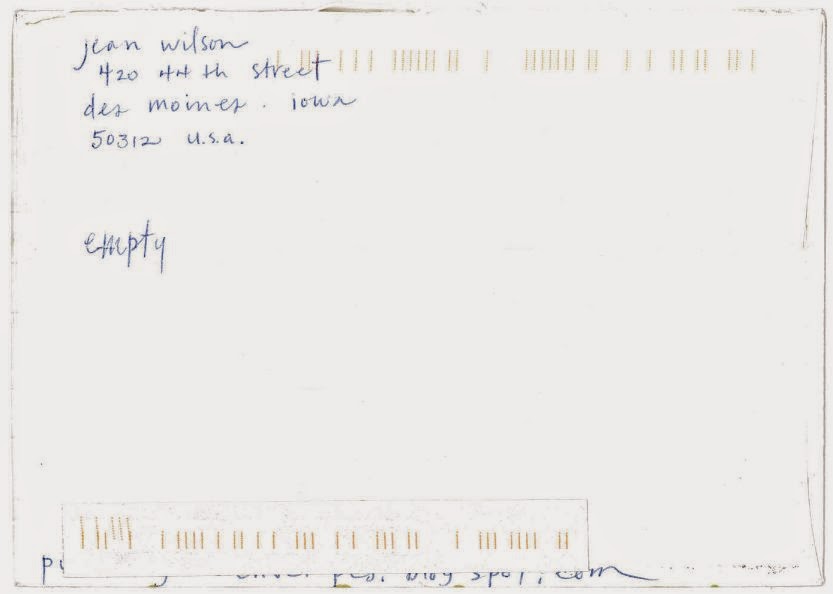 jean wilson
420 44th street
des moines. iowa
50312 u.s.a.
empty
blogspot.com